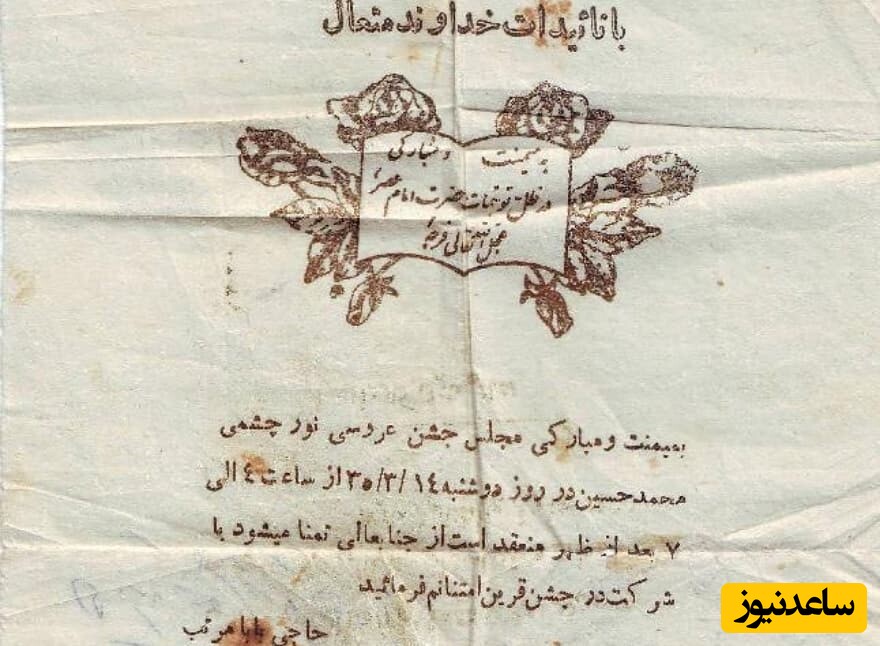 با تائیدات خداوند متعال
به میمنت و مبارکی
در ظل توجهات حضرت امام عصر
عجل الله تعالی فرجه
بمیمنت و مبارکی مجلس جشن عروسی نور چشمی
محمد حسین در روز دوشنبه ۳۵/۳/۱۴ از ساعت ٤ الی
۷ بعد از ظهر منعقد است از جنابعالی تمنا میشود با
شرکت در جشن قرین امتنانم فرمائید
حاجی بابا
ساعدنیوز